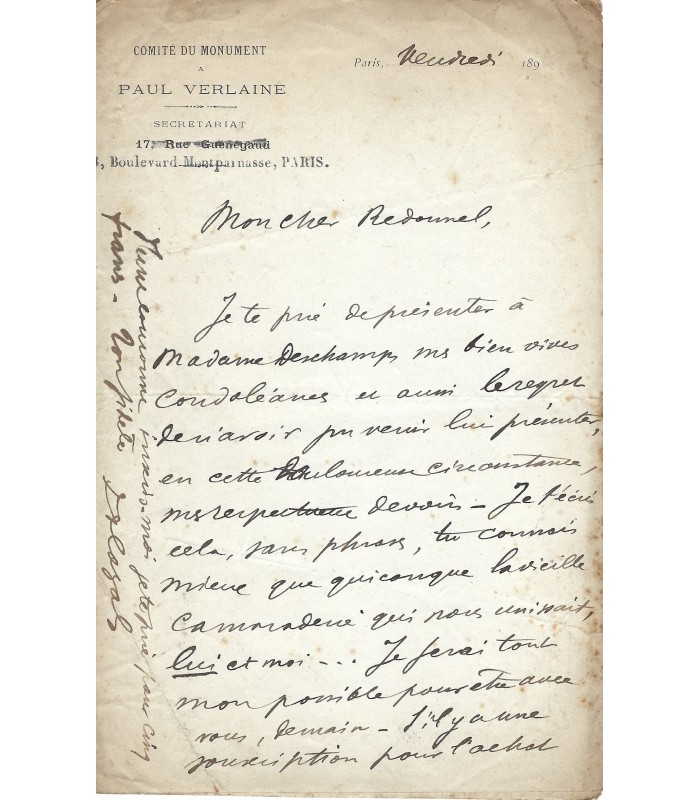 COMITÉ DU MONUMENT
A
PAUL VERLAINE
SECRÉTARIAT
17, Rue Guénégaud
, Boulevard Montparnasse, PARIS.
Paris, Vendredi 189
Mon cher Redonnel,
Je te prie de présenter à
Madame Deschamps mes bien vives
condoléances et aussi le regret
de n'avoir pu venir lui présenter,
en cette douloureuse circonstance,
mes respectueux devoirs – Je t'écris
cela, sans phrases, tu connais
mieux que quiconque la vieille
camaraderie qui nous unissait,
lui et moi - - - Je ferai tout
mon possible pour être avec
vous, demain – S'il y a une
souscription pour l'achat
d'une couronne inscris-moi je te prie pour cinq
francs – Ton fidèle